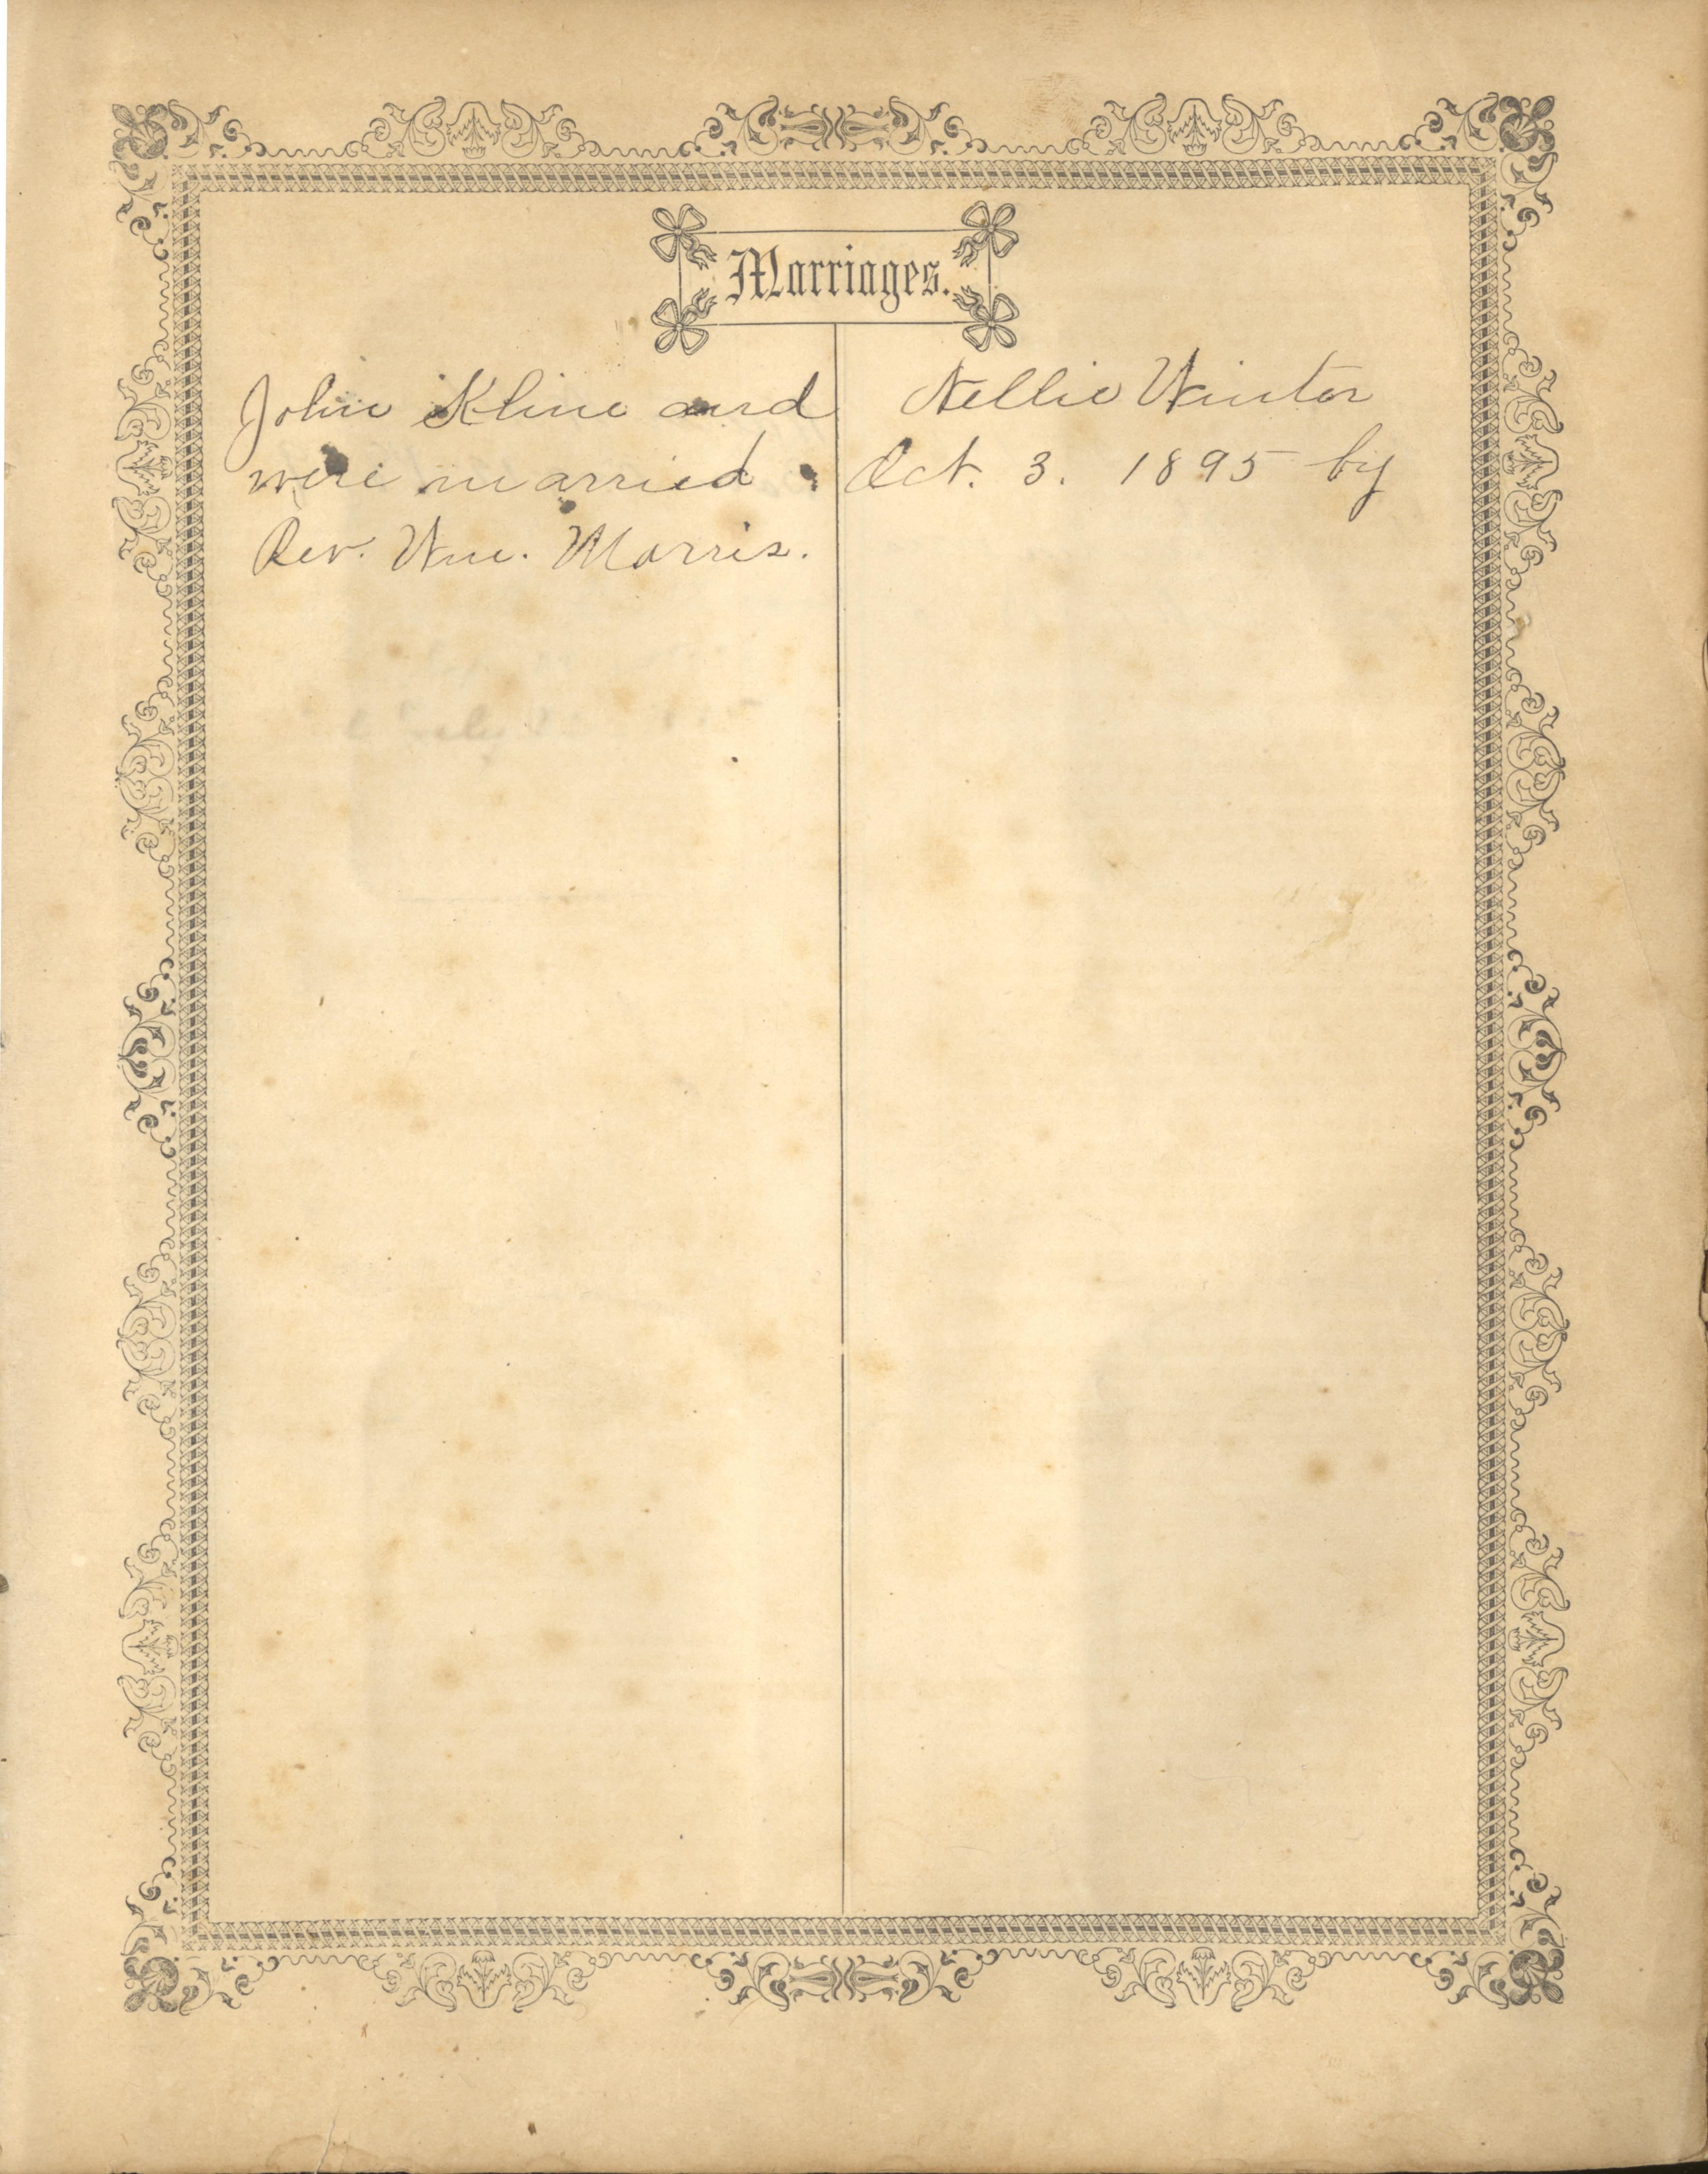 Marriages.
John Kline and Nellie Winter
were married Oct. 3. 1895 by
Rev. Wm. Morris.